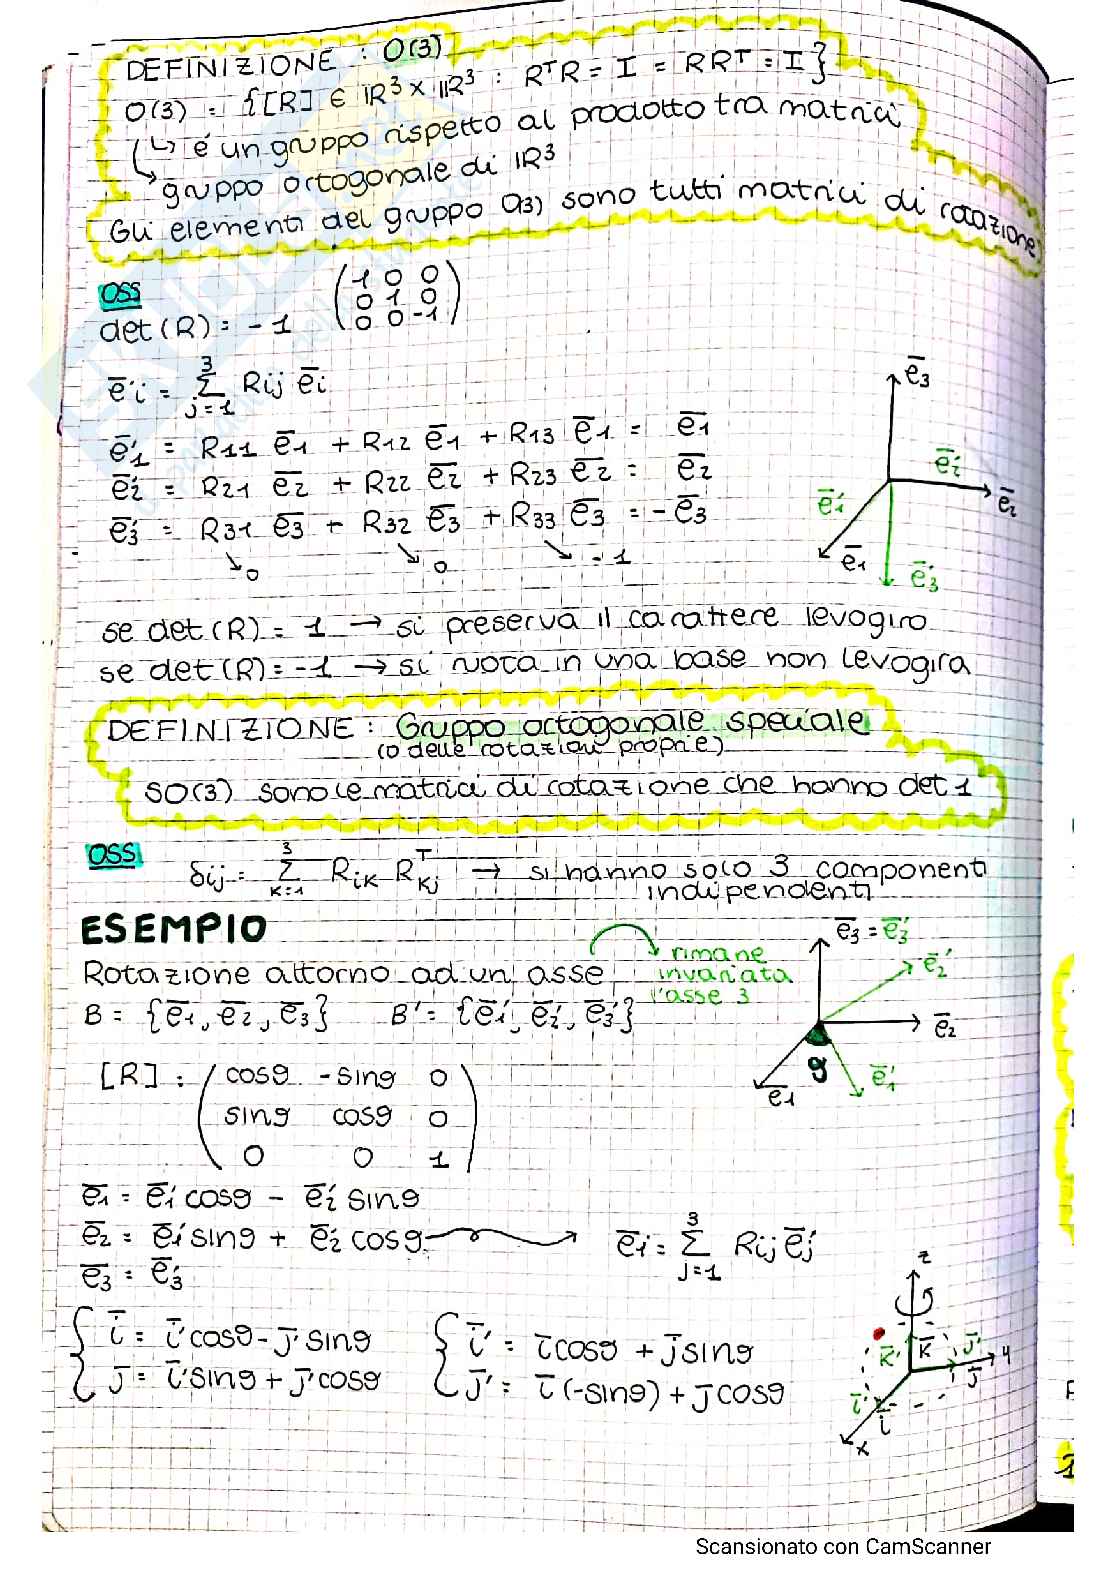 DEFINIZIONE : O(3)
O(3) = {[R] ∈ ℝ³ × ℝ³ : RᵀR = I = RRᵀ = I}
↳ é un gruppo rispetto al prodotto tra matrici
↳ gruppo ortogonale di ℝ³
Gli elementi del gruppo O(3) sono tutti matrici di rotazione
OSS
det(R) = -1
1 0 0
0 1 0
0 0 -1
ē'i = Σ Rij ēi
3
j=1
ē'1 = R11 ē1 + R12 ē1 + R13 ē1 = ē1
ē'2 = R21 ē2 + R22 ē2 + R23 ē2 = ē2
ē'3 = R31 ē3 + R32 ē3 + R33 ē3 = -ē3
↘ 0 ↘ 0 ↘ -1
ē3
ē'2
ē2
ē'1
ē1
ē'3
se det(R) = 1 → si preserva il carattere levogiro
se det(R) = -1 → si ruota in una base non levogira
DEFINIZIONE : Gruppo ortogonale speciale
(o delle rotazioni proprie)
SO(3) sono le matrici di rotazione che hanno det 1
OSS
δij = Σ Rik Rᵀkj → si hanno solo 3 componenti
3
k=1
indipendenti
ESEMPIO
Rotazione attorno ad un asse
rimane
invariata
l'asse 3
B = {ē1, ē2, ē3} B' = {ē'1, ē'2, ē'3}
ē3 = ē'3
ē'2
ē2
ē'1
ē1
ϑ
[R] =
cosϑ -sinϑ 0
sinϑ cosϑ 0
0 0 1
ē1 = ē'1 cosϑ - ē'2 sinϑ
ē2 = ē'1 sinϑ + ē'2 cosϑ → ēi = Σ Rij ē'j
3
j=1
ē3 = ē'3
ī = ī' cosϑ - j̄' sinϑ
j̄ = ī' sinϑ + j̄' cosϑ
ī' = ī cosϑ + j̄ sinϑ
j̄' = ī (-sinϑ) + j̄ cosϑ
z
k̄'
k̄
j̄'
y
j̄
ī'
ī
x
Scansionato con CamScanner